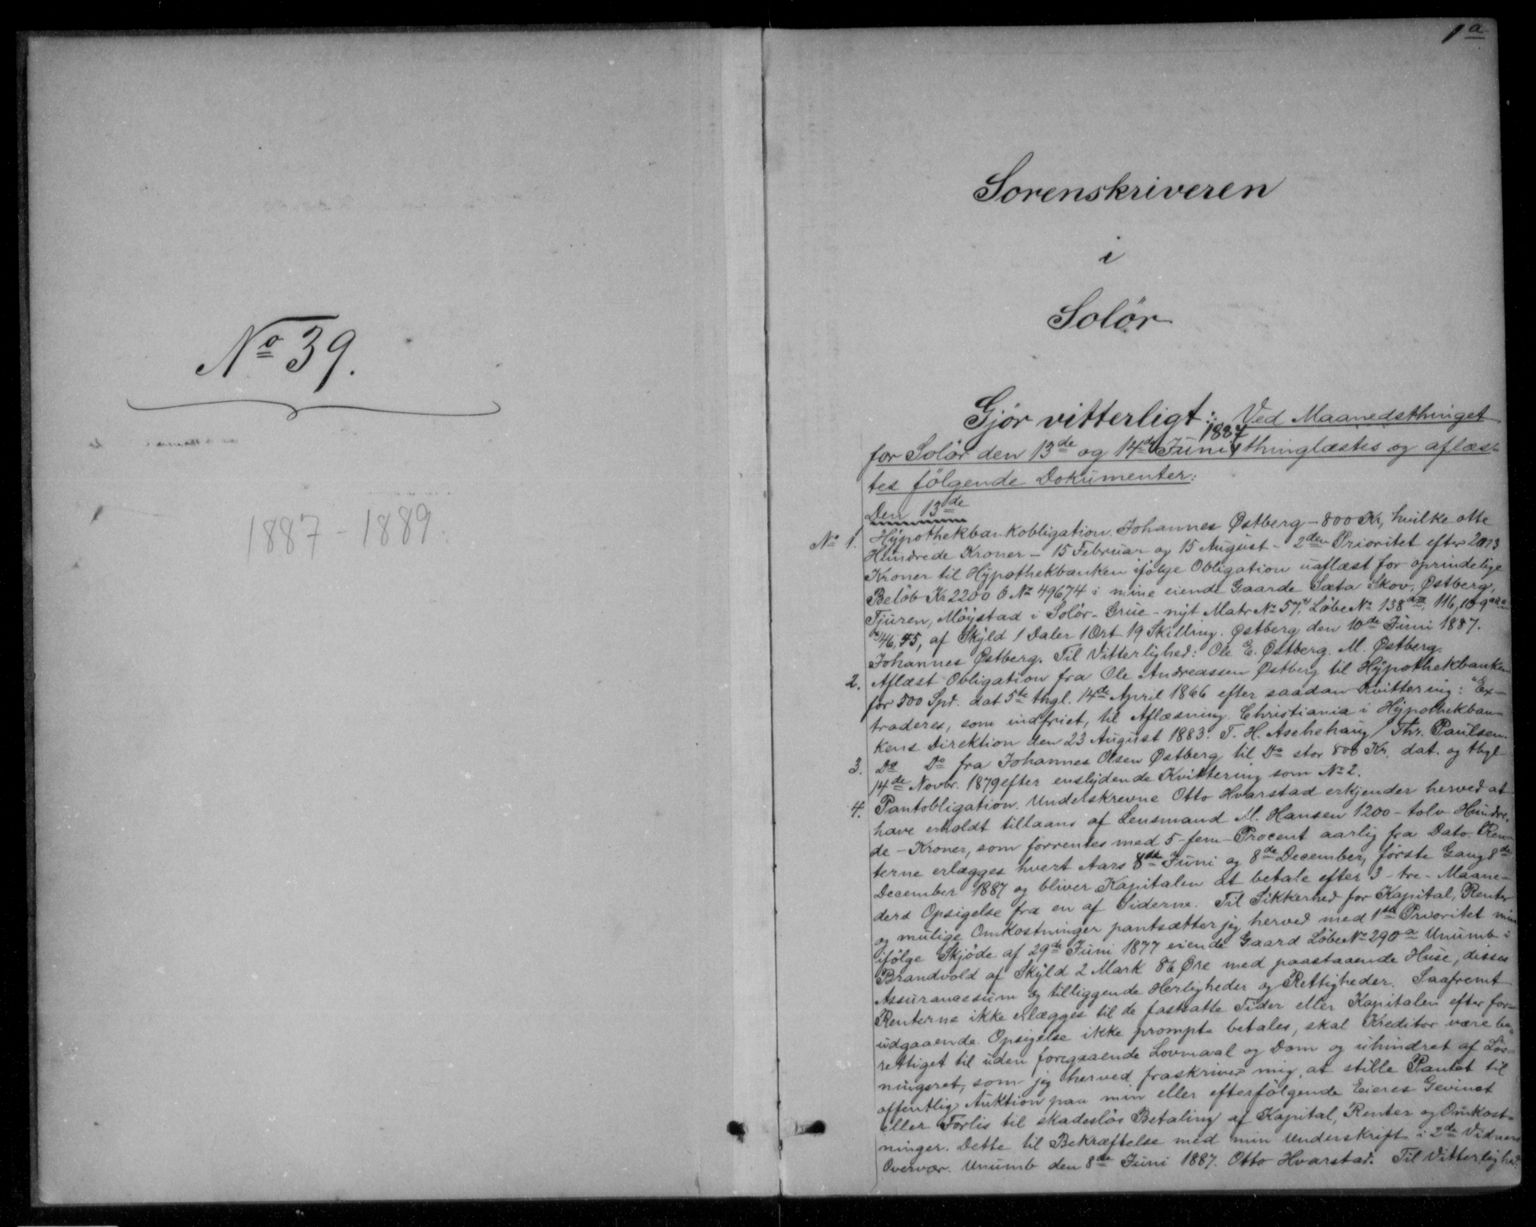 No 39.
1887 - 1889.
1a
Sorenskriveren
i
Solör
Gjör vitterligt: Ved Maanedsthinget
for Solör den 13de og 14de Juni 1887 thinglæstes og aflæs-
tes fölgende Dokumenter:
Den 13de
No 1. Hypothekbankobligation. Johannes Østberg - 800 Kr, hvilke otte
Hundrede Kroner - 15 Februar og 15 August - 2den Prioritet efter 2073
Kroner til Hypothekbanken ifølge Obligation uaflæst for oprindelige
Beløb Kr 2200 No 49674 i mine eiende Gaarde Sæta Skov, Østberg,
Tjuren, Möystad i Solör - Grue - nyt Matr No 57, Löbe No 138, 116, 109
46, 45, af Skyld 1 Daler 1 Ort 19 Skilling. Østberg den 10de Juni 1887.
Johannes Østberg. Til Vitterlighed: Ole E. Østberg. M. Østberg.
2. Aflæst Obligation fra Ole Andreassen Østberg til Hypothekbanken
for 500 Spd. dat 5te thgl. 14de April 1866 efter saadan Kvittering: "Ex-
traderes, som indfriet, til Aflæsning. Christiania i Hypothekban-
kens Direktion den 23 August 1883. T. H. Aschehaug / Thr. Paulsen.
3. Do Do fra Johannes Olsen Østberg til Do stor 800 Kr. dat. og thgl
14de Novbr. 1879 efter enslydende Kvittering som No 2.
4. Pantobligation. Underskrevne Otto Hvarstad erkjender herved at
have erholdt tillaans af Lensmand M. Hansen 1200 - tolv Hundre-
de - Kroner, som forrentes med 5 - fem - Procent aarlig fra Dato. Ren-
terne erlægges hvert Aars 8de Juni og 8de December, förste Gang 8de
December 1887 og bliver Kapitalen at betale efter 3 - tre - Maane-
ders Opsigelse fra en af Siderne. Til Sikkerhed for Kapital, Renter
og mulige Omkostninger pantsætter jeg herved med 1ste Prioritet min
ifölge Skjöde af 29de Juni 1877 eiende Gaard Löbe No 290a Unumb i
Brandvold af Skyld 2 Mark 86 Øre med paastaaende Huse, disses
Assurancesum og tilliggende Herligheder og Rettigheder. Saafremt
Renterne ikke erlægges til de fastsatte Tider eller Kapitalen efter for-
udgaaende Opsigelse ikke prompte betales, skal Kreditor være be-
rettiget til uden foregaaende Lovmaal og Dom og uhindret af Løs-
ningsret, som jeg herved fraskriver mig, at stille Pantet til
offentlig Auktion paa min eller efterfølgende Eieres Gevinst
eller Forlis til skadeslös Betaling af Kapital, Renter og Omkost-
ninger. Dette til Bekræftelse med min Underskrift i 2de Vidners
Overvær. Unumb den 8de Juni 1887. Otto Hvarstad. Til Vitterlighed